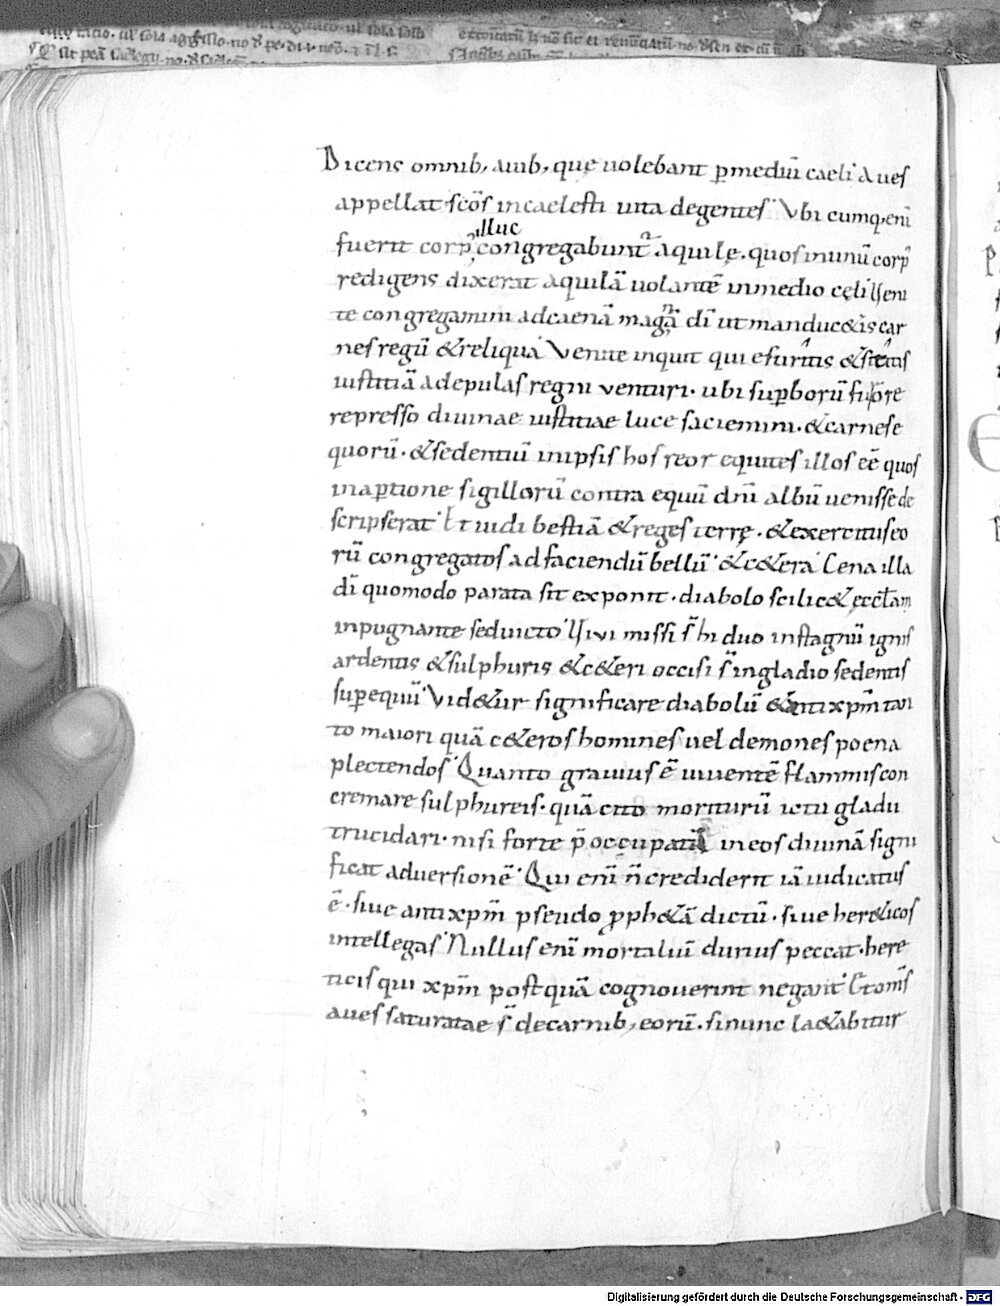 Dicens omnib; auib; quę uolebant ꝑmediū caeli Aues
appellat scōs incaelesti uita degentes Vbi cumq; eni
illuc
fuerit corp; congregabunt aquilę. quos inunū corp
redigens dixerat aquilā uolantē inmedio cęli Ueni
te congregamini adcaenā magnā dī ut manduc&is car
nes regū & reliqua Venite inquit qui esuritis & sititis
iustitiā adepulas regni venturi. ubi suꝑborū furore
represso diuinae iustitiae luce saciemini. & carnes e
quorū. & sedentiū inipsis hos reor equites illos eē quos
inaꝑtione sigillorū contra equū dnī albū uenisse de
scripserat Et uidi bestiā & reges terrę. & exercitus eo
rū congregatos ad faciendū bellū & c&era Cena illa
dī quomodo parata sit exponit. diabolo scilic& ęcclam
inpugnante seduicto Uiui missi s̄ hi duo instagnū ignis
ardentis & sulphuris & c&eri occisi s̄ ingladio sedentis
suꝑ equū Vid&ur significare diabolū & anti xpm̄ tan
to maiori quā c&eros homines uel demones poena
plectendos Quanto grauius ē uiuentē flammis con
cremare sulphureis. quā cito moriturū ictu gladii
trucidari. nisi forte p̄occupatū in eos diuinā signi
ficat aduersionē Qui enī n̄ crediderit iā iudicatus
ē. siue anti xpm̄ pseudo ꝓph&ā dictū. siue her&icos
intellegas Nullus enī mortaliū durius peccat. here
ticis qui xpm̄ postquā cognouerint negant Et om̄s
aues saturatae s̄ decarnib; eorū. si nunc la&abitur
Digitalisierung gefördert durch die Deutsche Forschungsgemeinschaft - DFG